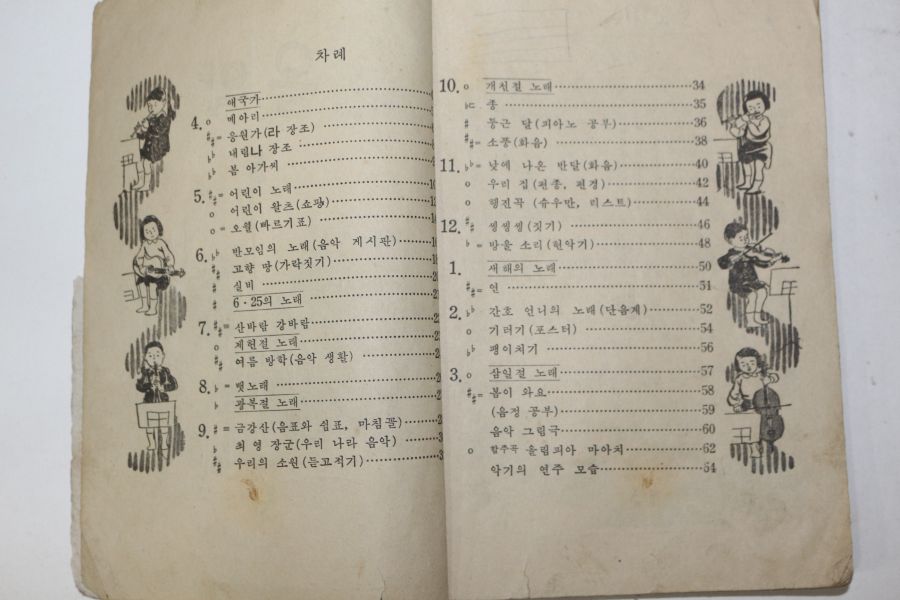 차례
애국가
4. 메아리
응원가(라 장조)
내림나 장조
봄 아가씨
5. 어린이 노래
어린이 왈츠(쇼팡)
오월(바르기표)
6. 반모임의 노래(음악 게시판)
고향 땅(가락짓기)
실비
6·25의 노래
7. 산바람 강바람
제헌절 노래
여름 방학(음악 생활)
8. 뱃노래
광복절 노래
9. 금강산(음표와 쉼표, 마침꼴)
최 영 장군(우리 나라 음악)
우리의 소원(듣고적기)
10. 개천절 노래 34
종 35
둥근 달(피아노 공부) 36
소풍(화음) 38
11. 낮에 나온 반달(화음) 40
우리 집(편종, 편경) 42
행진곡 (슈우만, 리스트) 44
12. 씽씽씽(짓기) 46
방울 소리(현악기) 48
1. 새해의 노래 50
연 51
2. 간호 언니의 노래(단음계) 52
기러기(포스터) 54
팽이치기 56
3. 삼일절 노래 57
봄이 와요 58
(음정 공부) 59
음악 그림극 60
합주곡 올림피아 마아치 62
악기의 연주 모습 54